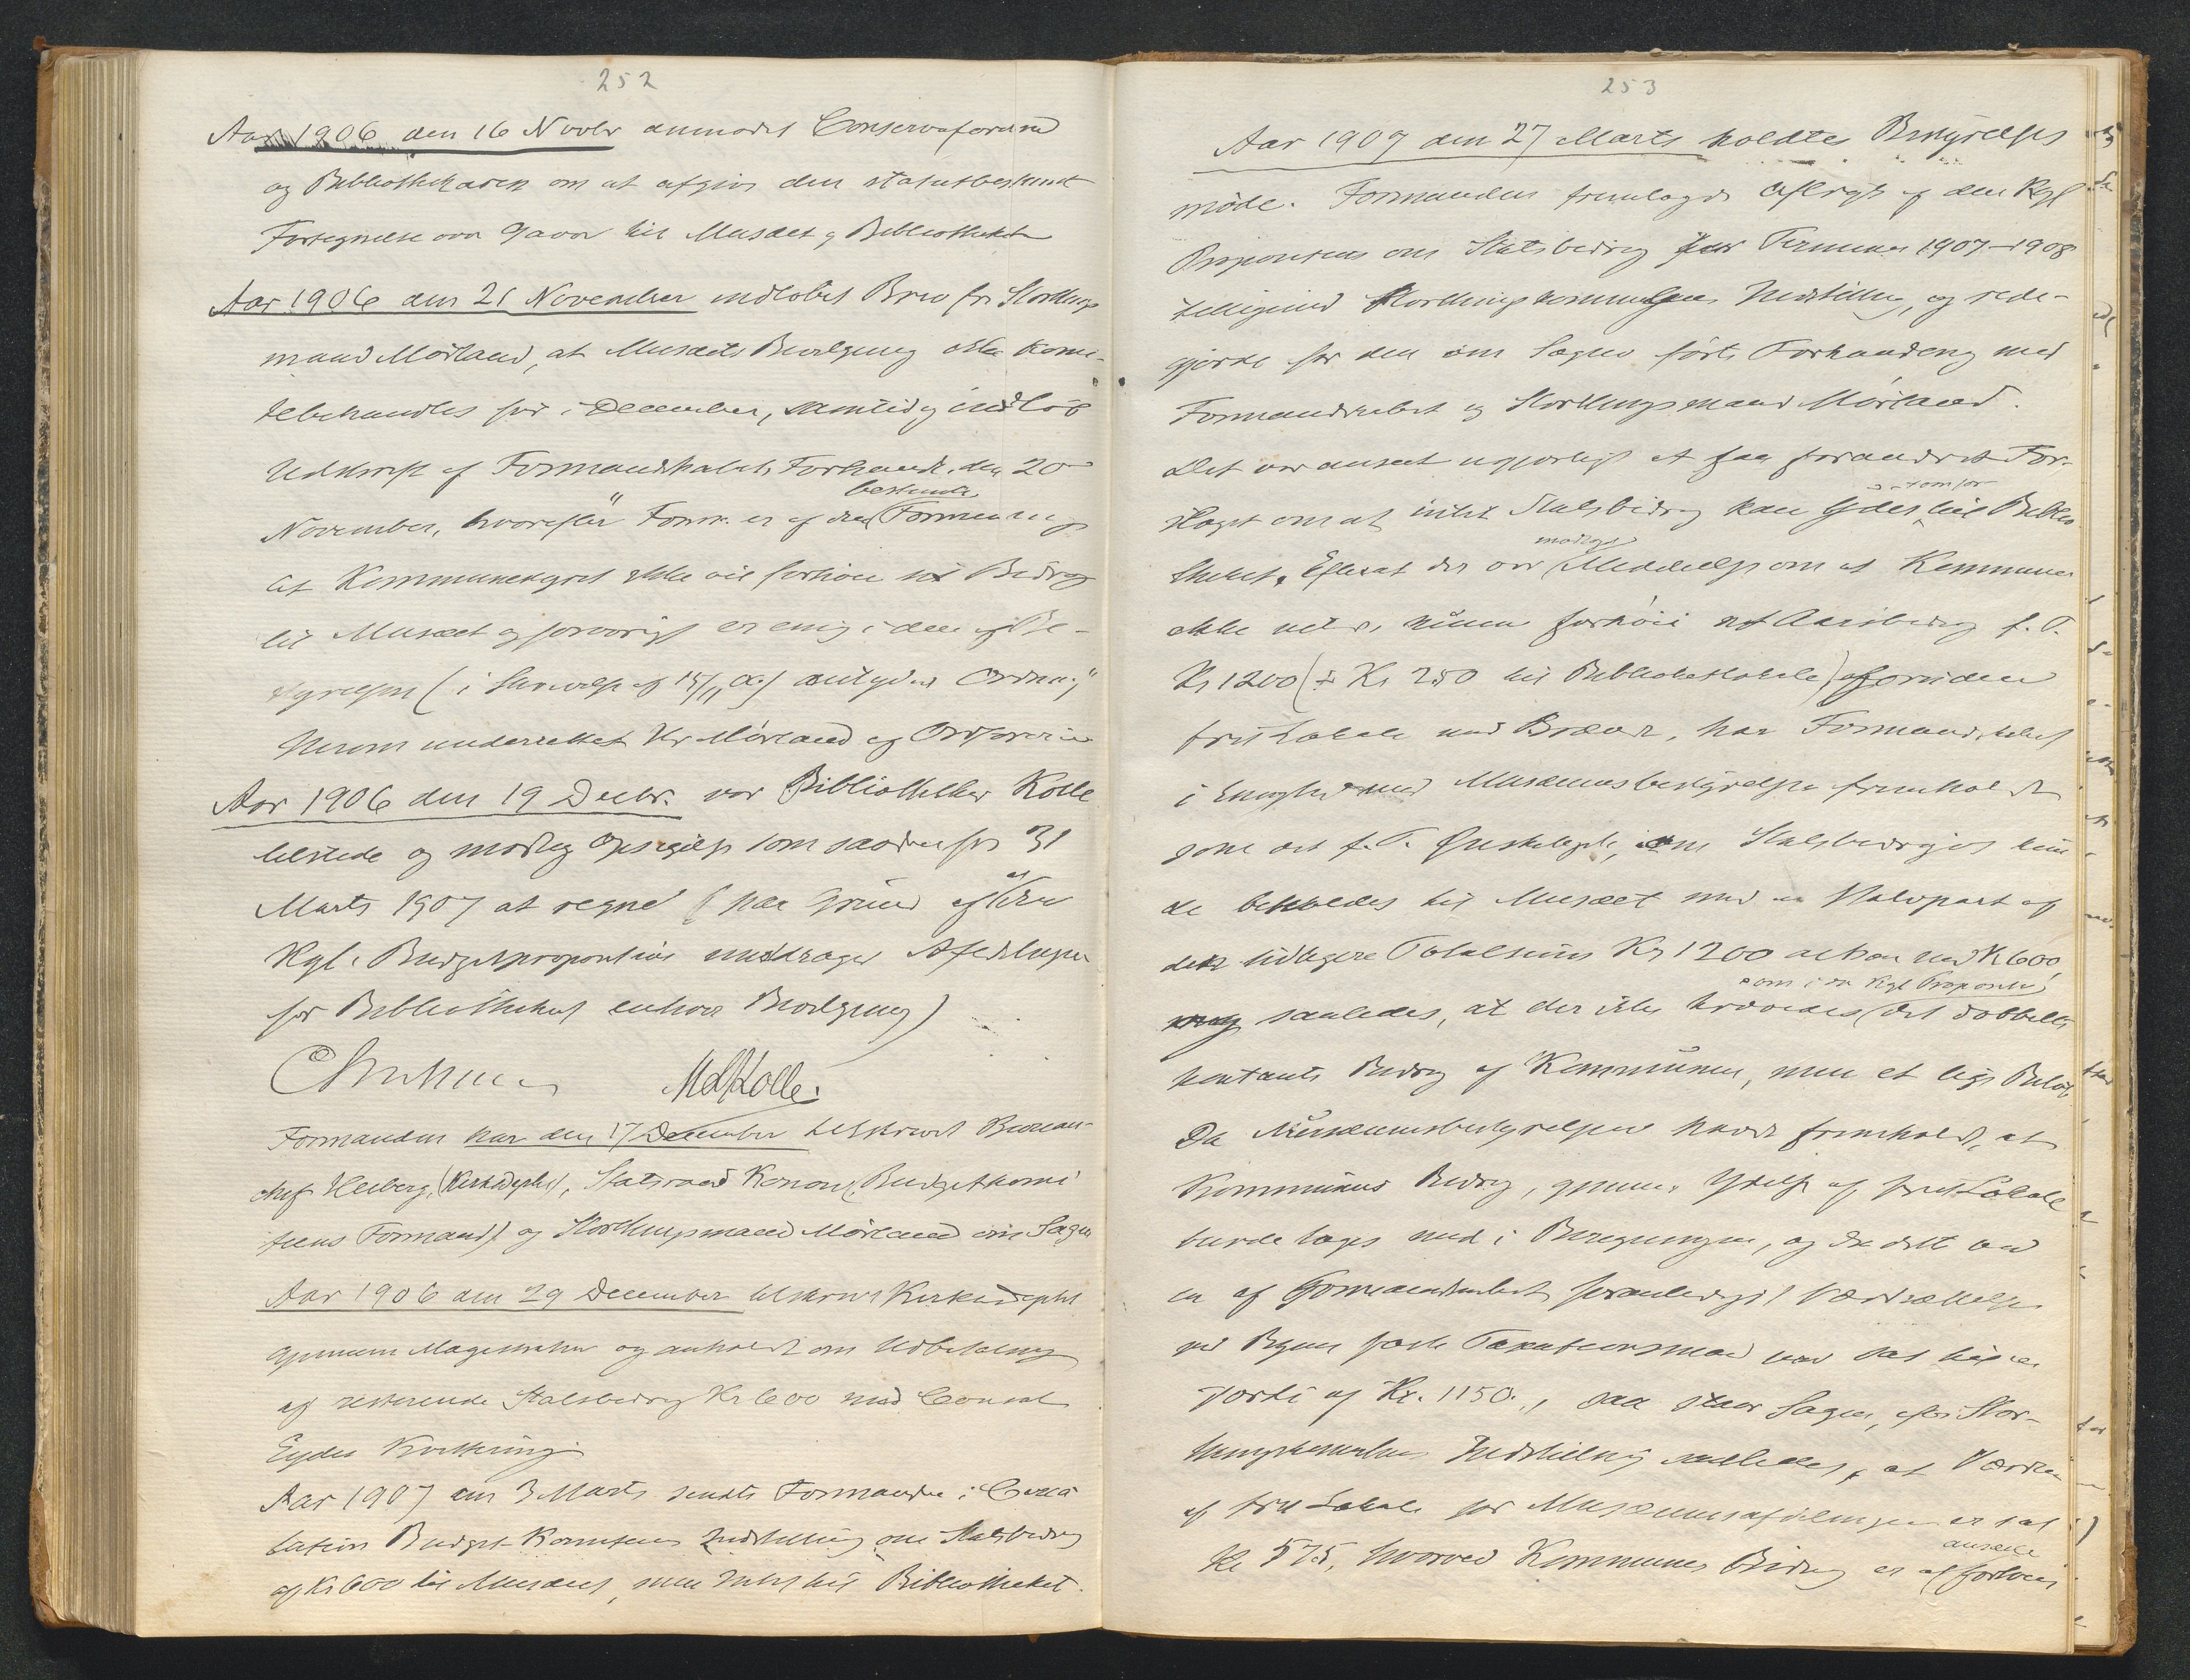 252
Aar 1906 den 16 Novbr anmodet Conservatorerne
og Bibliothekaren om at afgive den statutbestemte
Fortegnelse over Gaver til Musæet og Bibliotheket
Aar 1906 den 21 November indløbet Brev fra Storthings
mand Mörland, at Musæets Bevilgning ikke komi-
tebehandles før i December, samtidig indløb
Udskrift af Formandskabets Forhandl. den 20
November, hvorefter "Form. er af den bestemte Formening
at Kommunestyret ikke vil forhøie sit Bidrag
til Musæet og forøvrigt er enig i den af Be-
styrelsen (i Skrivelse af 15/11 06) antydede Ordning"
Herom underrettet Hr Mörland og Ordføreren
Aar 1906 den 19 Decbr. var Bibliothekar Kolle
tilstede og modtog Opsigelse som saadan fra 31
Marts 1907 at regne (paa Grund af at den
Kgl. Budgetproposition unddrager Afdelingen
for Bibliotheket enhver Bevilgning)
M Kolle.
Formanden har den 17 December tilskrevet Bureau-
chef Heiberg, (Kirkedept), Statsraad Konow (Budgetkomi
teens Formand) og Storthingsmand Mörland om Sagen
Aar 1906 den 29 December tilskrevet Kirkedeptet
gjennem Magistraten og anholdt om Udbetaling
af resterende Statsbidrag Kr 600 mod Consul
Eydes Kvittering
Aar 1907 den 3 Marts sendte Formanden i Circu
lation Budget-Komiteens Indstilling om Statsbidrag
af Kr 600 til Musæet, men Intet til Bibliotheket.
253
Aar 1907 den 27 Marts holdtes Bestyrelses
møde. Formanden fremlagde Aftryk af den Kgl
Proposition om Statsbidrag for Terminen 1907-1908
tilligemed Storthingskomiteens Indstilling, og rede-
gjorde for den om Sagen førte Forhandling med
Formandskabet og Storthingsmand Mörland.
Det var anseet ugjørligt at faa forandret For-
slaget om at intet Statsbidrag kan ydes til Biblio
theket. Efterat der var modtaget Meddelelse om at Kommunen
ikke vilde kunne forhøie sit Aarsbidrag f. T.
Kr 1200 (÷ Kr 250 til Bibliotheklokale) foruden
frit Lokale med Brænde, har Formandskabet
i Enighed med Musæumsbestyrelsen fremholdt
som det f. T. Ønskeligste, om Statsbidraget kun
de beholdes til Musæet med en Halvpart af
den tidligere Totalsum Kr 1200 altsaa med Kr 600,
saaledes, at der ikke krævedes som i den Kgl Proposition det dobbelte
kontante Bidrag af Kommunen, men et lige Beløb
Da Musæumsbestyrelsen havde fremholdt, at
Kommunens Bidrag, gjennem Ydelse af frit Lokale
burde tages med i Beregningen, og da dette ved
en af Formandskabet foranlediget Værdsættelse
ved Byens faste Taxationsmænd var sat til en
Værdi af Kr. 1150., saa staar Sagen, efter Stor-
thingskomiteens Indstilling saaledes, at Værdien
af frit Lokale for Musæumsafdelingen er sat
Kr 575, hvorved Kommunens Bidrag er at ansees forhøiet